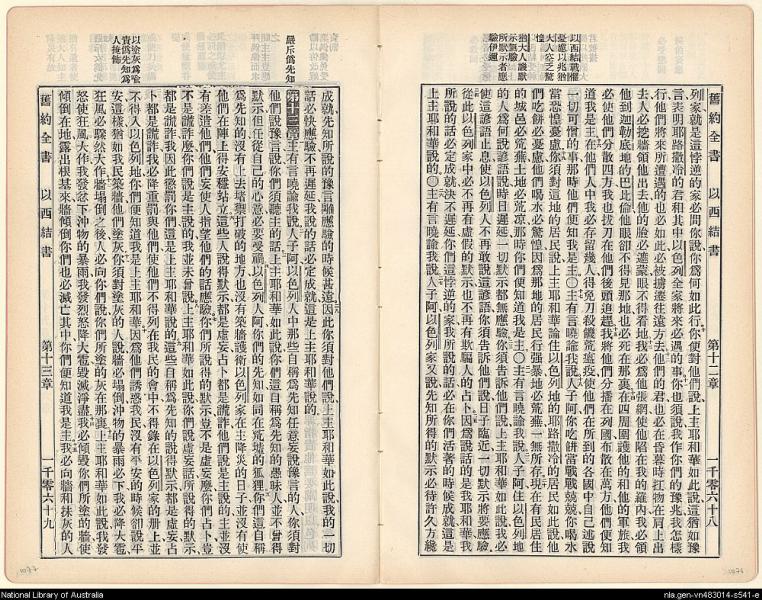 舊約全書 以西結書 第十二章 一千零六十八
以西結戰慄
憂慮以兆猶
大人定之驚
惶
猶大人譏默
示無驗
所默示者應
驗伊邇
列家就是這悖逆的家必問你說你爲何如此行你便對他們說上主耶和華如此說這猶如豫
言表明耶路撒冷的君和其中以色列全家將來必遇的事你也須說我作你們的豫兆我怎樣
行他們將來所遭遇的也必如此必被擄遷往遠方去他們的君也必在昏暮時扛物在肩上出
去人必挖牆領他出去他的臉必遮蒙眼不得看地我必爲他張網使他陷在我的羅內我必領
他到迦勒底地的巴比倫他眼卻不得見那地也必死在那裏在四周圍護他的和他的軍旅我
必使他們分散四方我也拔刀在他們後頭追趕我將他們分播在列國布散在萬方他們便知
道我是主在他們人中我必存留幾人得免刀殺饑荒瘟疫使他們在所到的各國中自己述說
一切可憎的事那時他們便知我是主〇主有言曉諭我說人子阿你吃餅當戰戰兢兢你喝水
當惹惶憂慮你須對這地的居民說上主耶和華論住以色列地的耶路撒冷的居民如此說他
們吃餅必憂慮他們喝水必驚惶因爲那地的居民行强暴地必荒蕪一無所存現在有民居住
的城邑必荒蕪土地必荒凉那時你們便知道我是主〇主有言曉諭我說人子阿住以色列地
的人爲何說諺語說時日遲延一切默示都無應驗你須告訴他們說上主耶和華如此說我必
使這諺語止息使以色列人不再敢說這諺語你須告訴他們說日子臨近一切默示將要應驗
從此以色列家中必不再有虛假的默示也不再有欺騙人的占卜因爲說話的是我耶和華我
所說的話必定成就決不遲延你們這悖逆的家我所說的話必在你們活著的時候成就這是
上主耶和華說的〇主有言曉諭我說人子阿以色列家又說先知所得的默示必待許久方纔
嚴斥僞先知
以塗灰爲喻
責僞先知爲
人掩飾
成就先知所說的豫言離應驗的時候甚遠因此你須對他們說上主耶和華如此說我的一切
話必快應驗不再遲延我說的話必定成就這是上主耶和華說的
第十三章主有言曉諭我說人子阿以色列人中那些自稱爲先知任意妄說豫言的人你須對
他們說豫言說你們須聽主的話上主耶和華如此說你們這自稱爲先知的愚昧人並不曾得
默示但任從自己的心意必要受禍以色列人阿你們的先知如同在荒墟的狐狸你們這自稱
爲先知的沒有上去堵禦打破的地方也沒有築牆護衞以色列家在主降災的日子並沒有使
他們在陣上得安穩站立這些人說得默示都是虛妄占卜都是謊詐他們說是主說的主並沒
有差遣他們他們妄使人指望他們的話應驗你們所說得的默示豈不是虛妄麼你們占卜豈
不是謊詐麼你們說是主說的我並未曾說上主耶和華如此說你們說虛妄話所說得的默示
都是謊詐我因此懲罰你們這是上主耶和華說的這些自稱爲先知的說得默示都是虛妄占
卜都是謊詐我必降重罰與他們使他們不得列在我民的會中不得錄在以色列家的册上並
不得入以色列地你們便知道我是上主耶和華因爲他們誘惑我民沒有平安的時候卻說平
安這樣猶如我民築牆他們塗灰你須對塗灰的人說牆必塌倒沖物的暴雨必下我必降大雹
狂風必驟然大作牆塌倒之後人必向你們說你們所塗的灰在那裏上主耶和華如此說我發
怒使狂風大作我發忿下沖物的暴雨我發烈怒降大雹毀滅淨盡我必傾毀你們所塗的牆使
傾倒在地露出根基來牆傾倒你們也必滅亡其中你們便知道我是主我必向牆和抹灰的人
舊約全書 以西結書 第十三章 一千零六十九
1077
1076
National Library of Australia
nla.gen-vn483014-s541-e